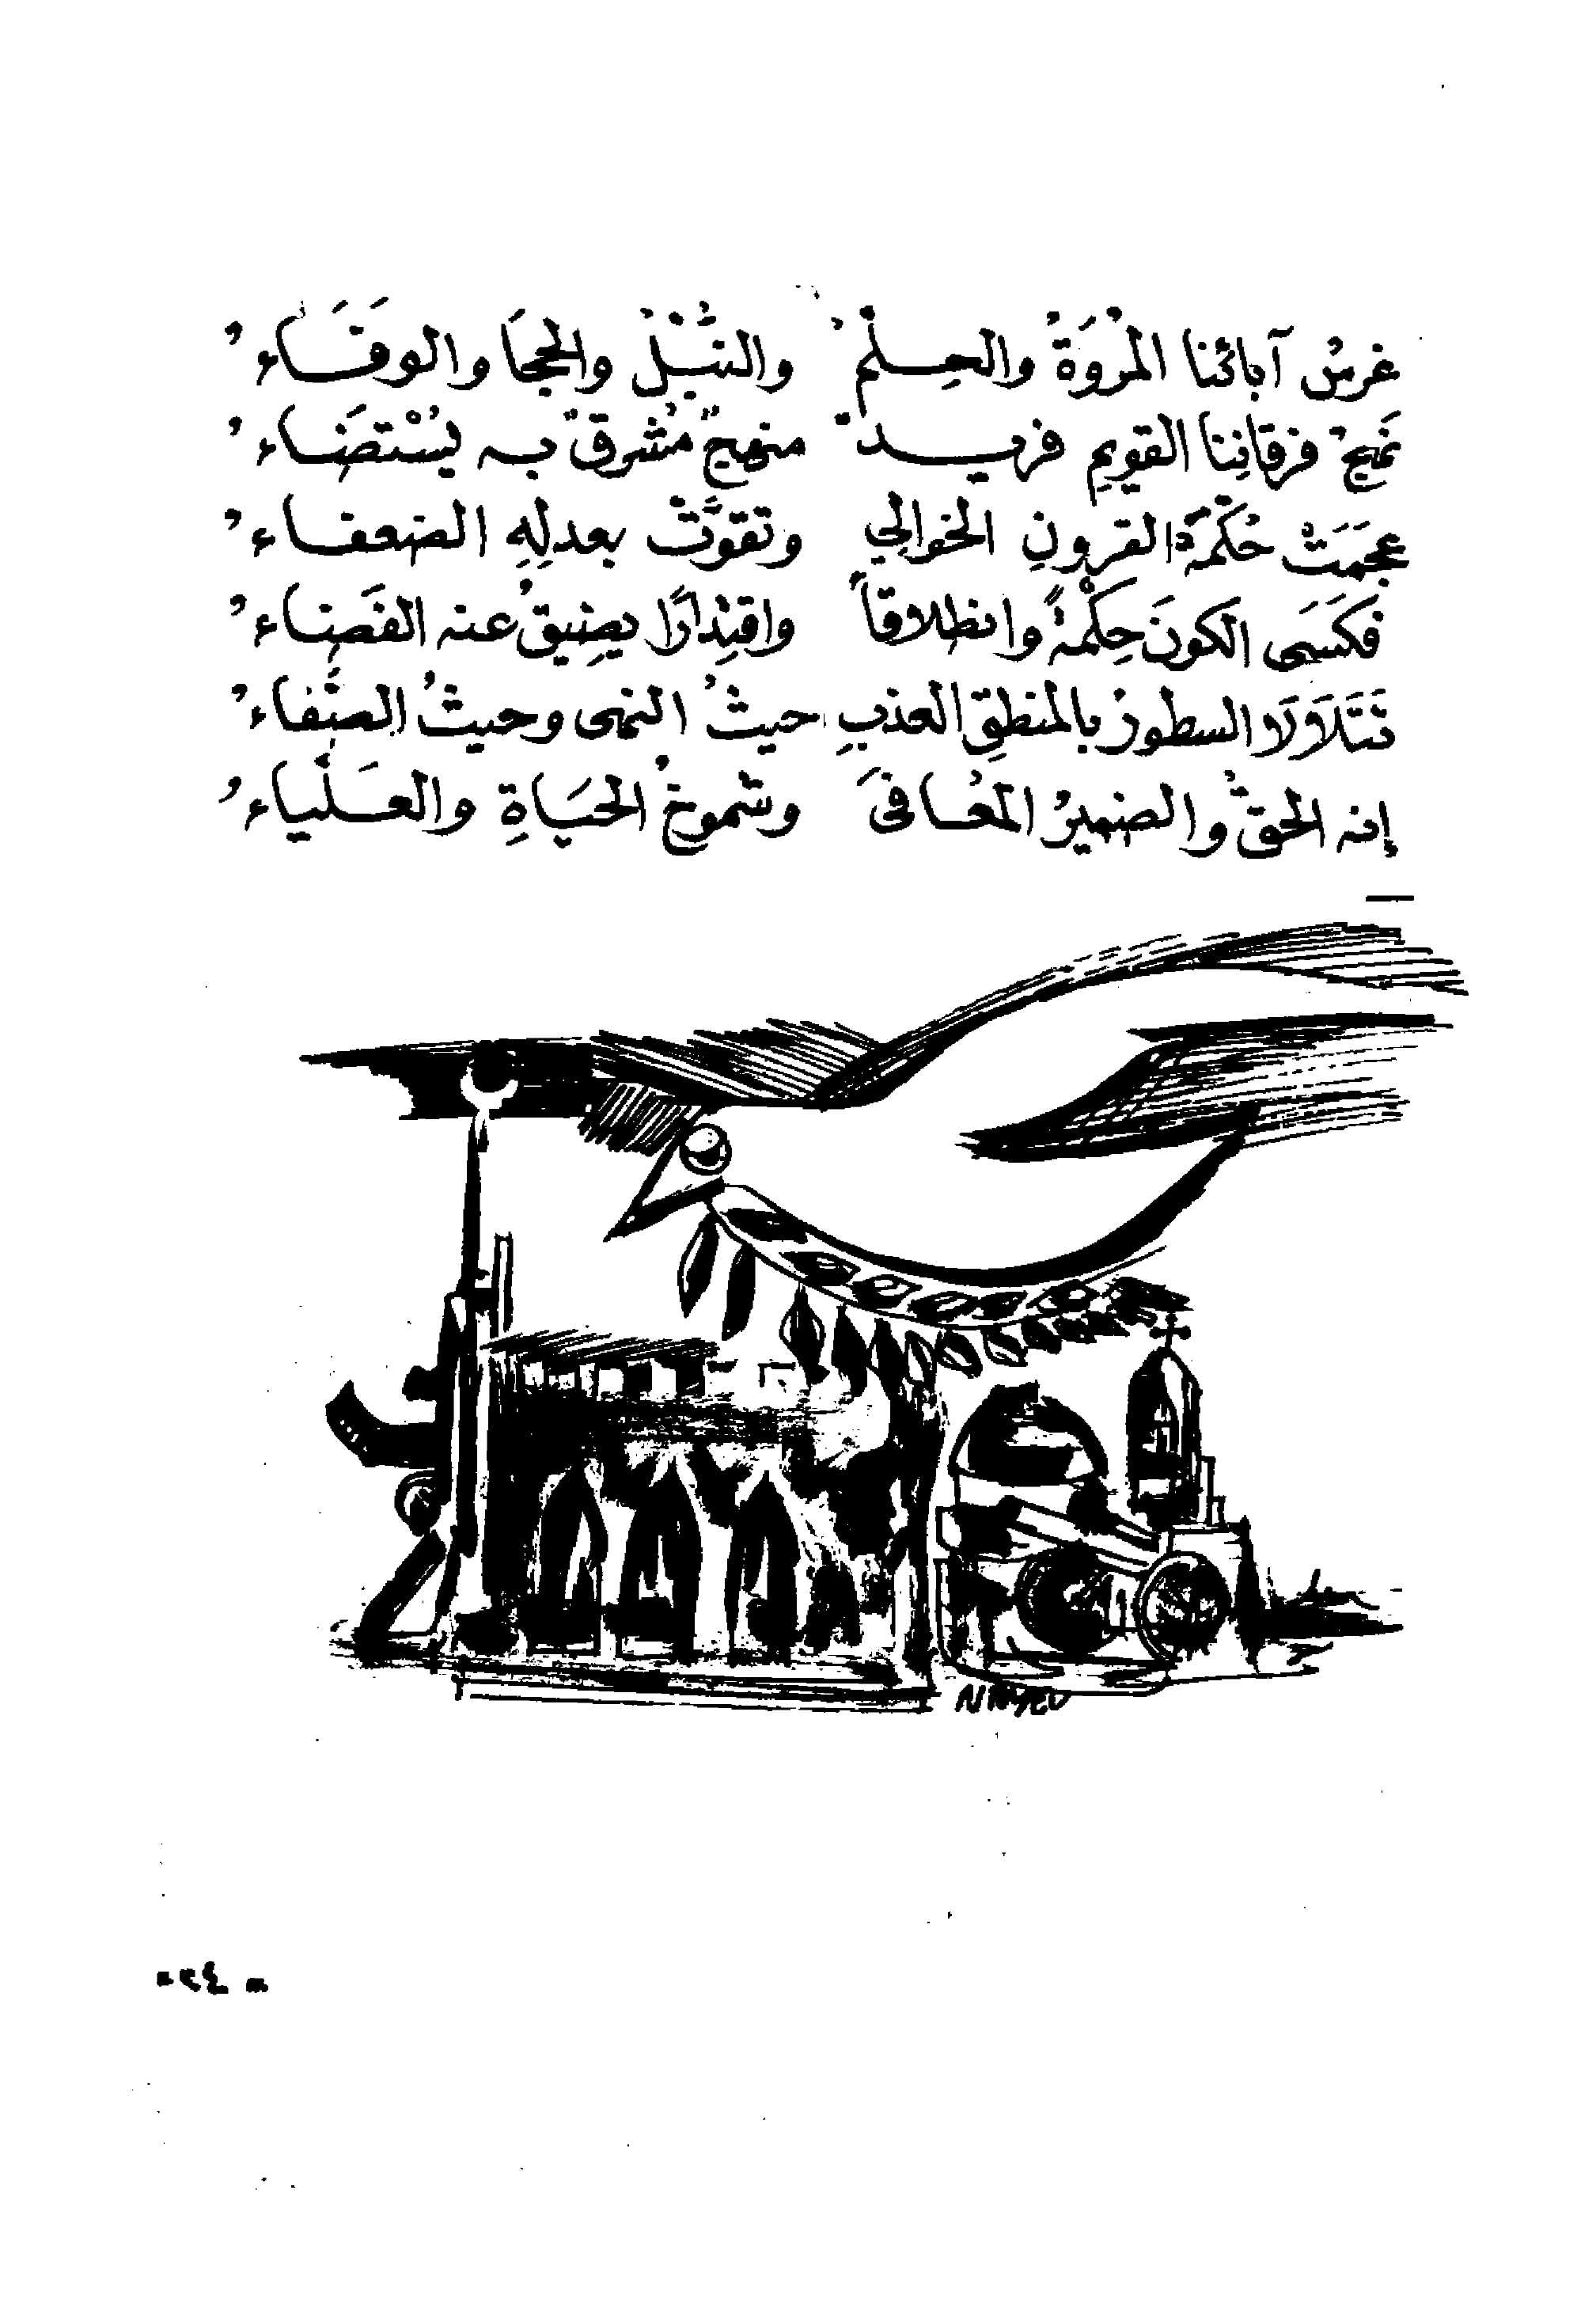 غرسُ آبائنا المُرُوَةُ والحِلْمُ والنُّبْلُ والحِجَا والوفَاءُ
نَهجُ فرقانِنا القويمِ فريدٌ منهجٌ مُشرقٌ به يُسْتضَاءُ
عَجَمَتْ حُكْمَهُ القرونِ الخوالِي وتقوَّتْ بعدلِهِ الضعفاءُ
فكَسَى الكونَ حِكْمةً وانطلاقاً واقتِدارًا يضِيقُ عنه الفَضَاءُ
تَتَلَالَا السطورُ بالمنطقِ العذبِ حيثُ النهى وحيثُ الصَّفاءُ
إنه الحقُّ والضميرُ المُعَافَى وشموخُ الحيَاةِ والعَلْياءُ
NAYEU
- ٣٤ -